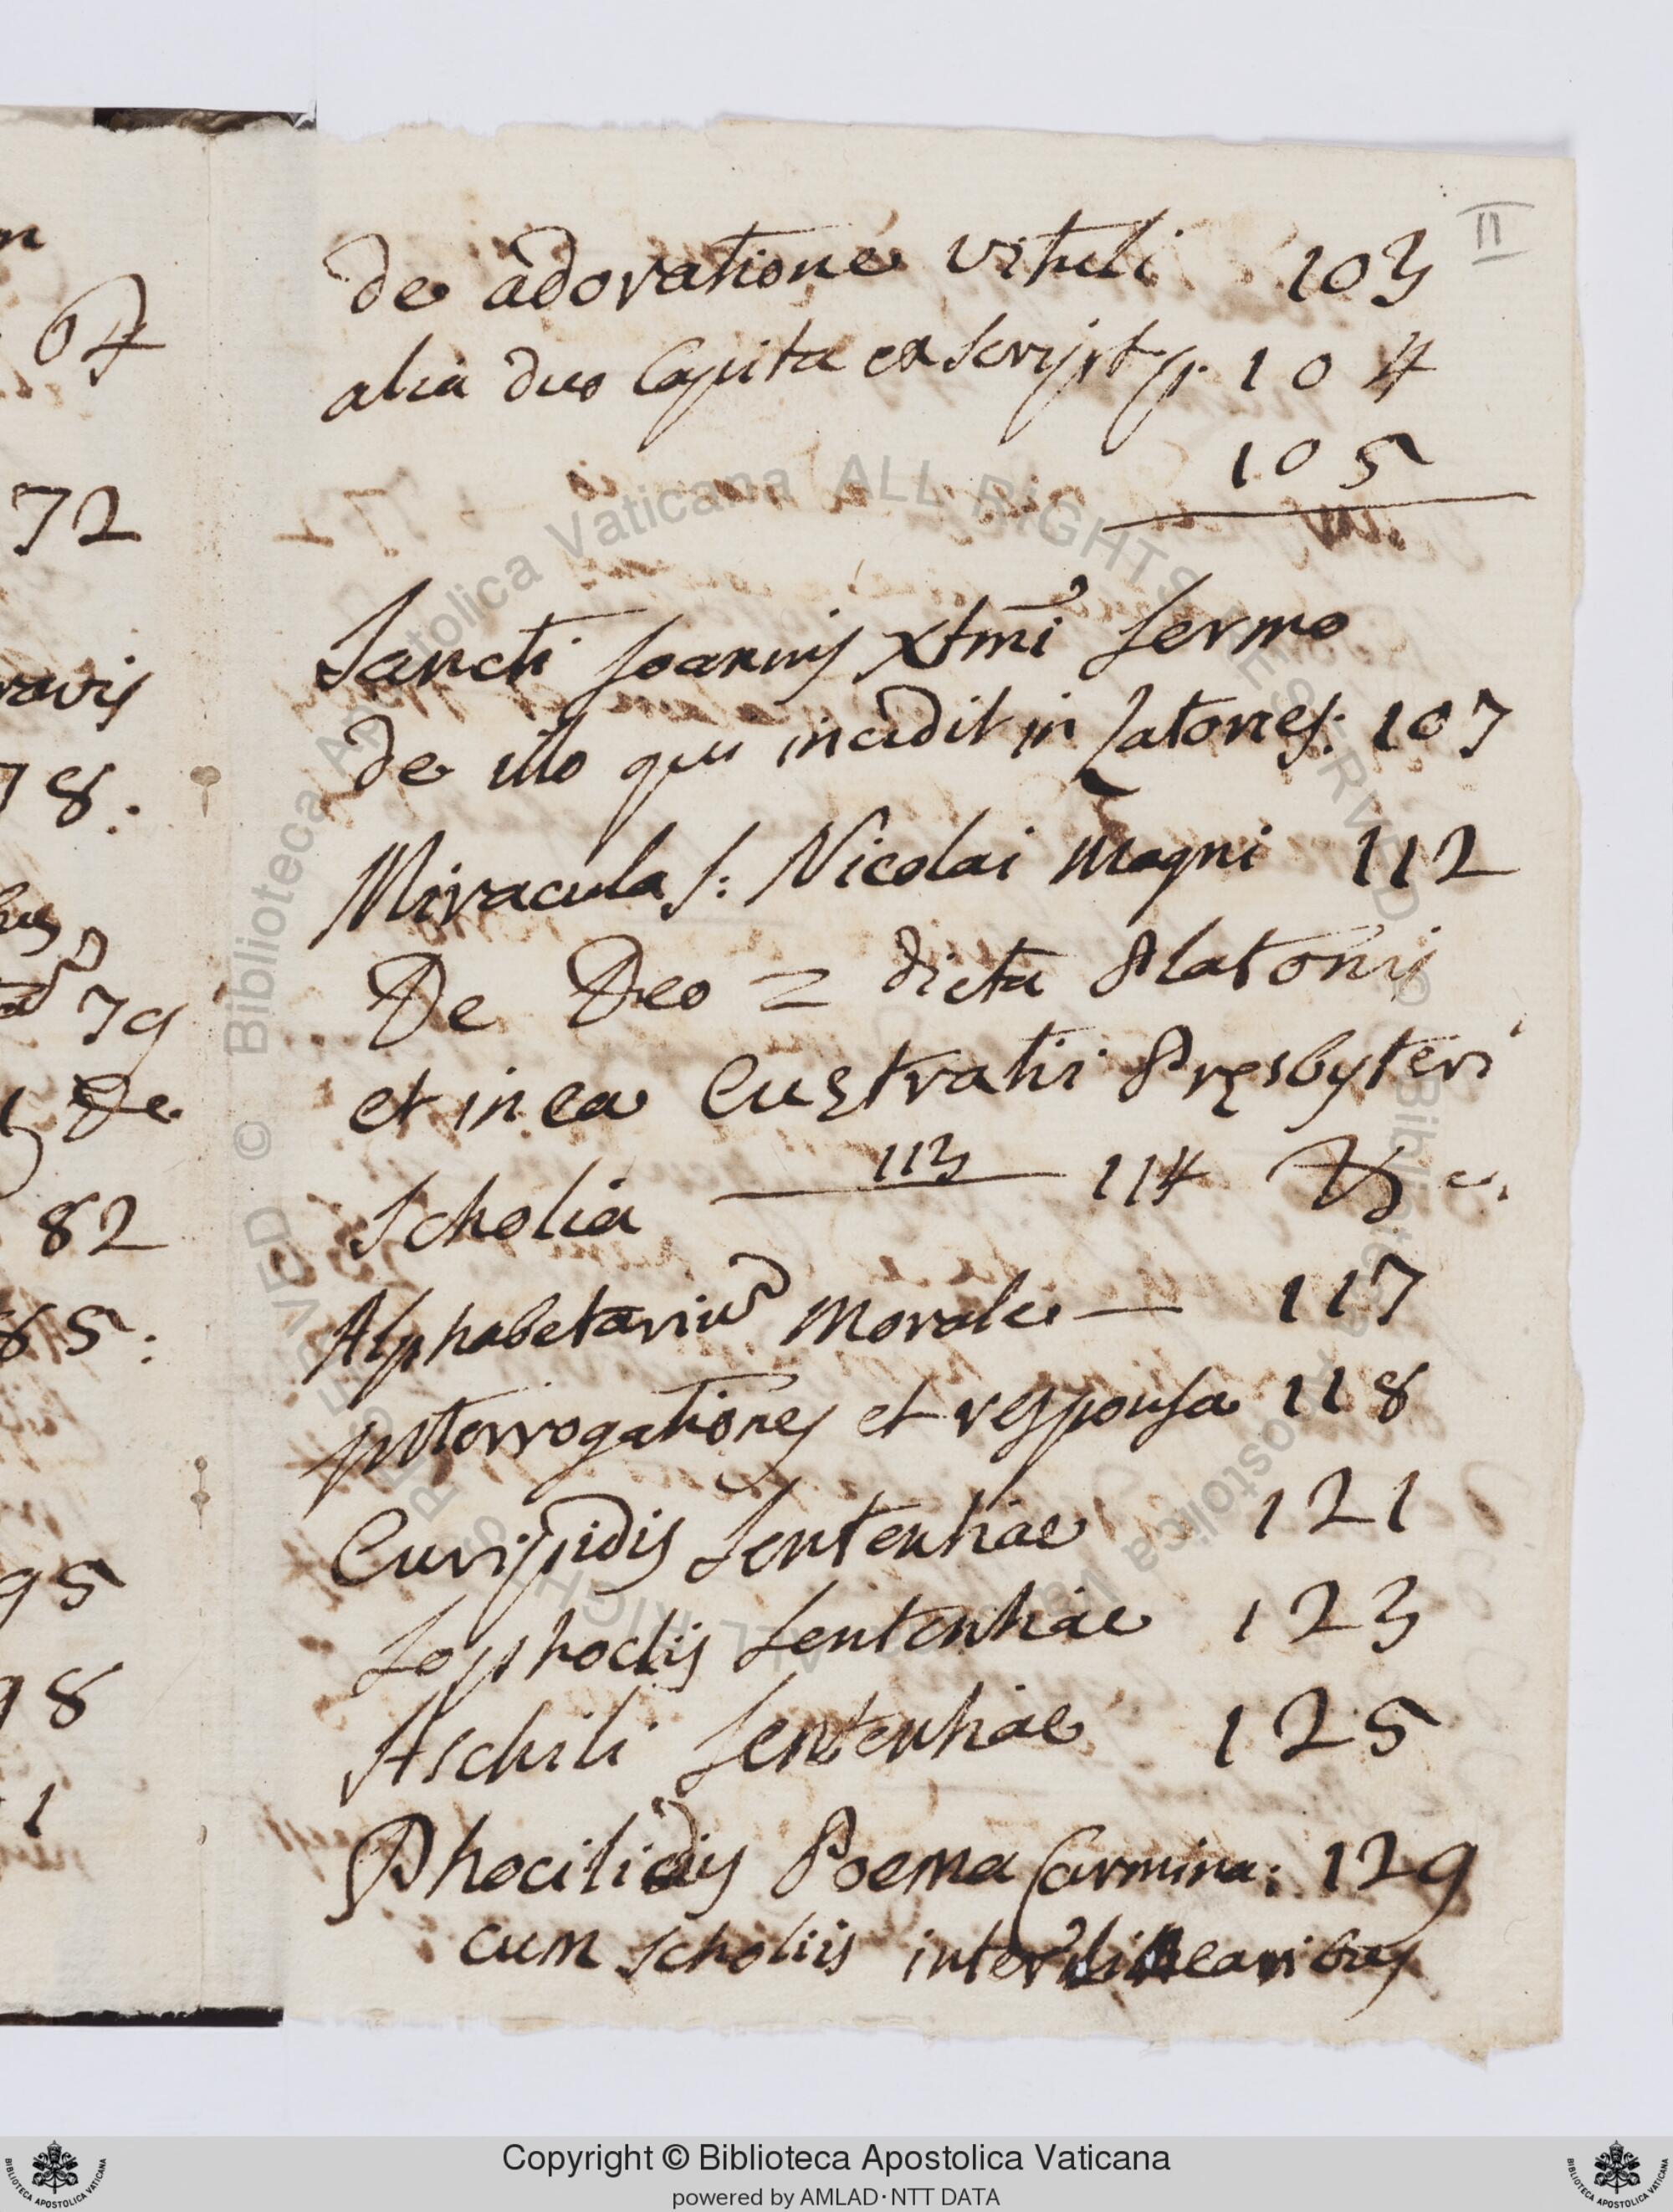 II
de adoratione vituli 103
alia duo Capita ex script p. 104
105
Sancti Joannis Xtmi Sermo
de illo qui incidit in Latones: 107
Miracula S: Nicolai Magni 112
De Deo = dicta Platonis
et in ea Eustratii Presbyteri
Scholia 113 114
Alphabetariu Morale — 117
Interrogationes et responsa 118
Euripidis Sententiae 121
Sophoclis Sententiae 123
Aschili Sententiae 125
Phocilidis Poema Carmina: 129
cum scholiis interlinearibus
67
72
78:
79
De
82
85:
95
98
1
© Biblioteca Apostolica Vaticana ALL RIGHTS RESERVED
Copyright © Biblioteca Apostolica Vaticana
powered by AMLAD·NTT DATA
BIBLIOTECA APOSTOLICA VATICANA
BIBLIOTECA APOSTOLICA VATICANA